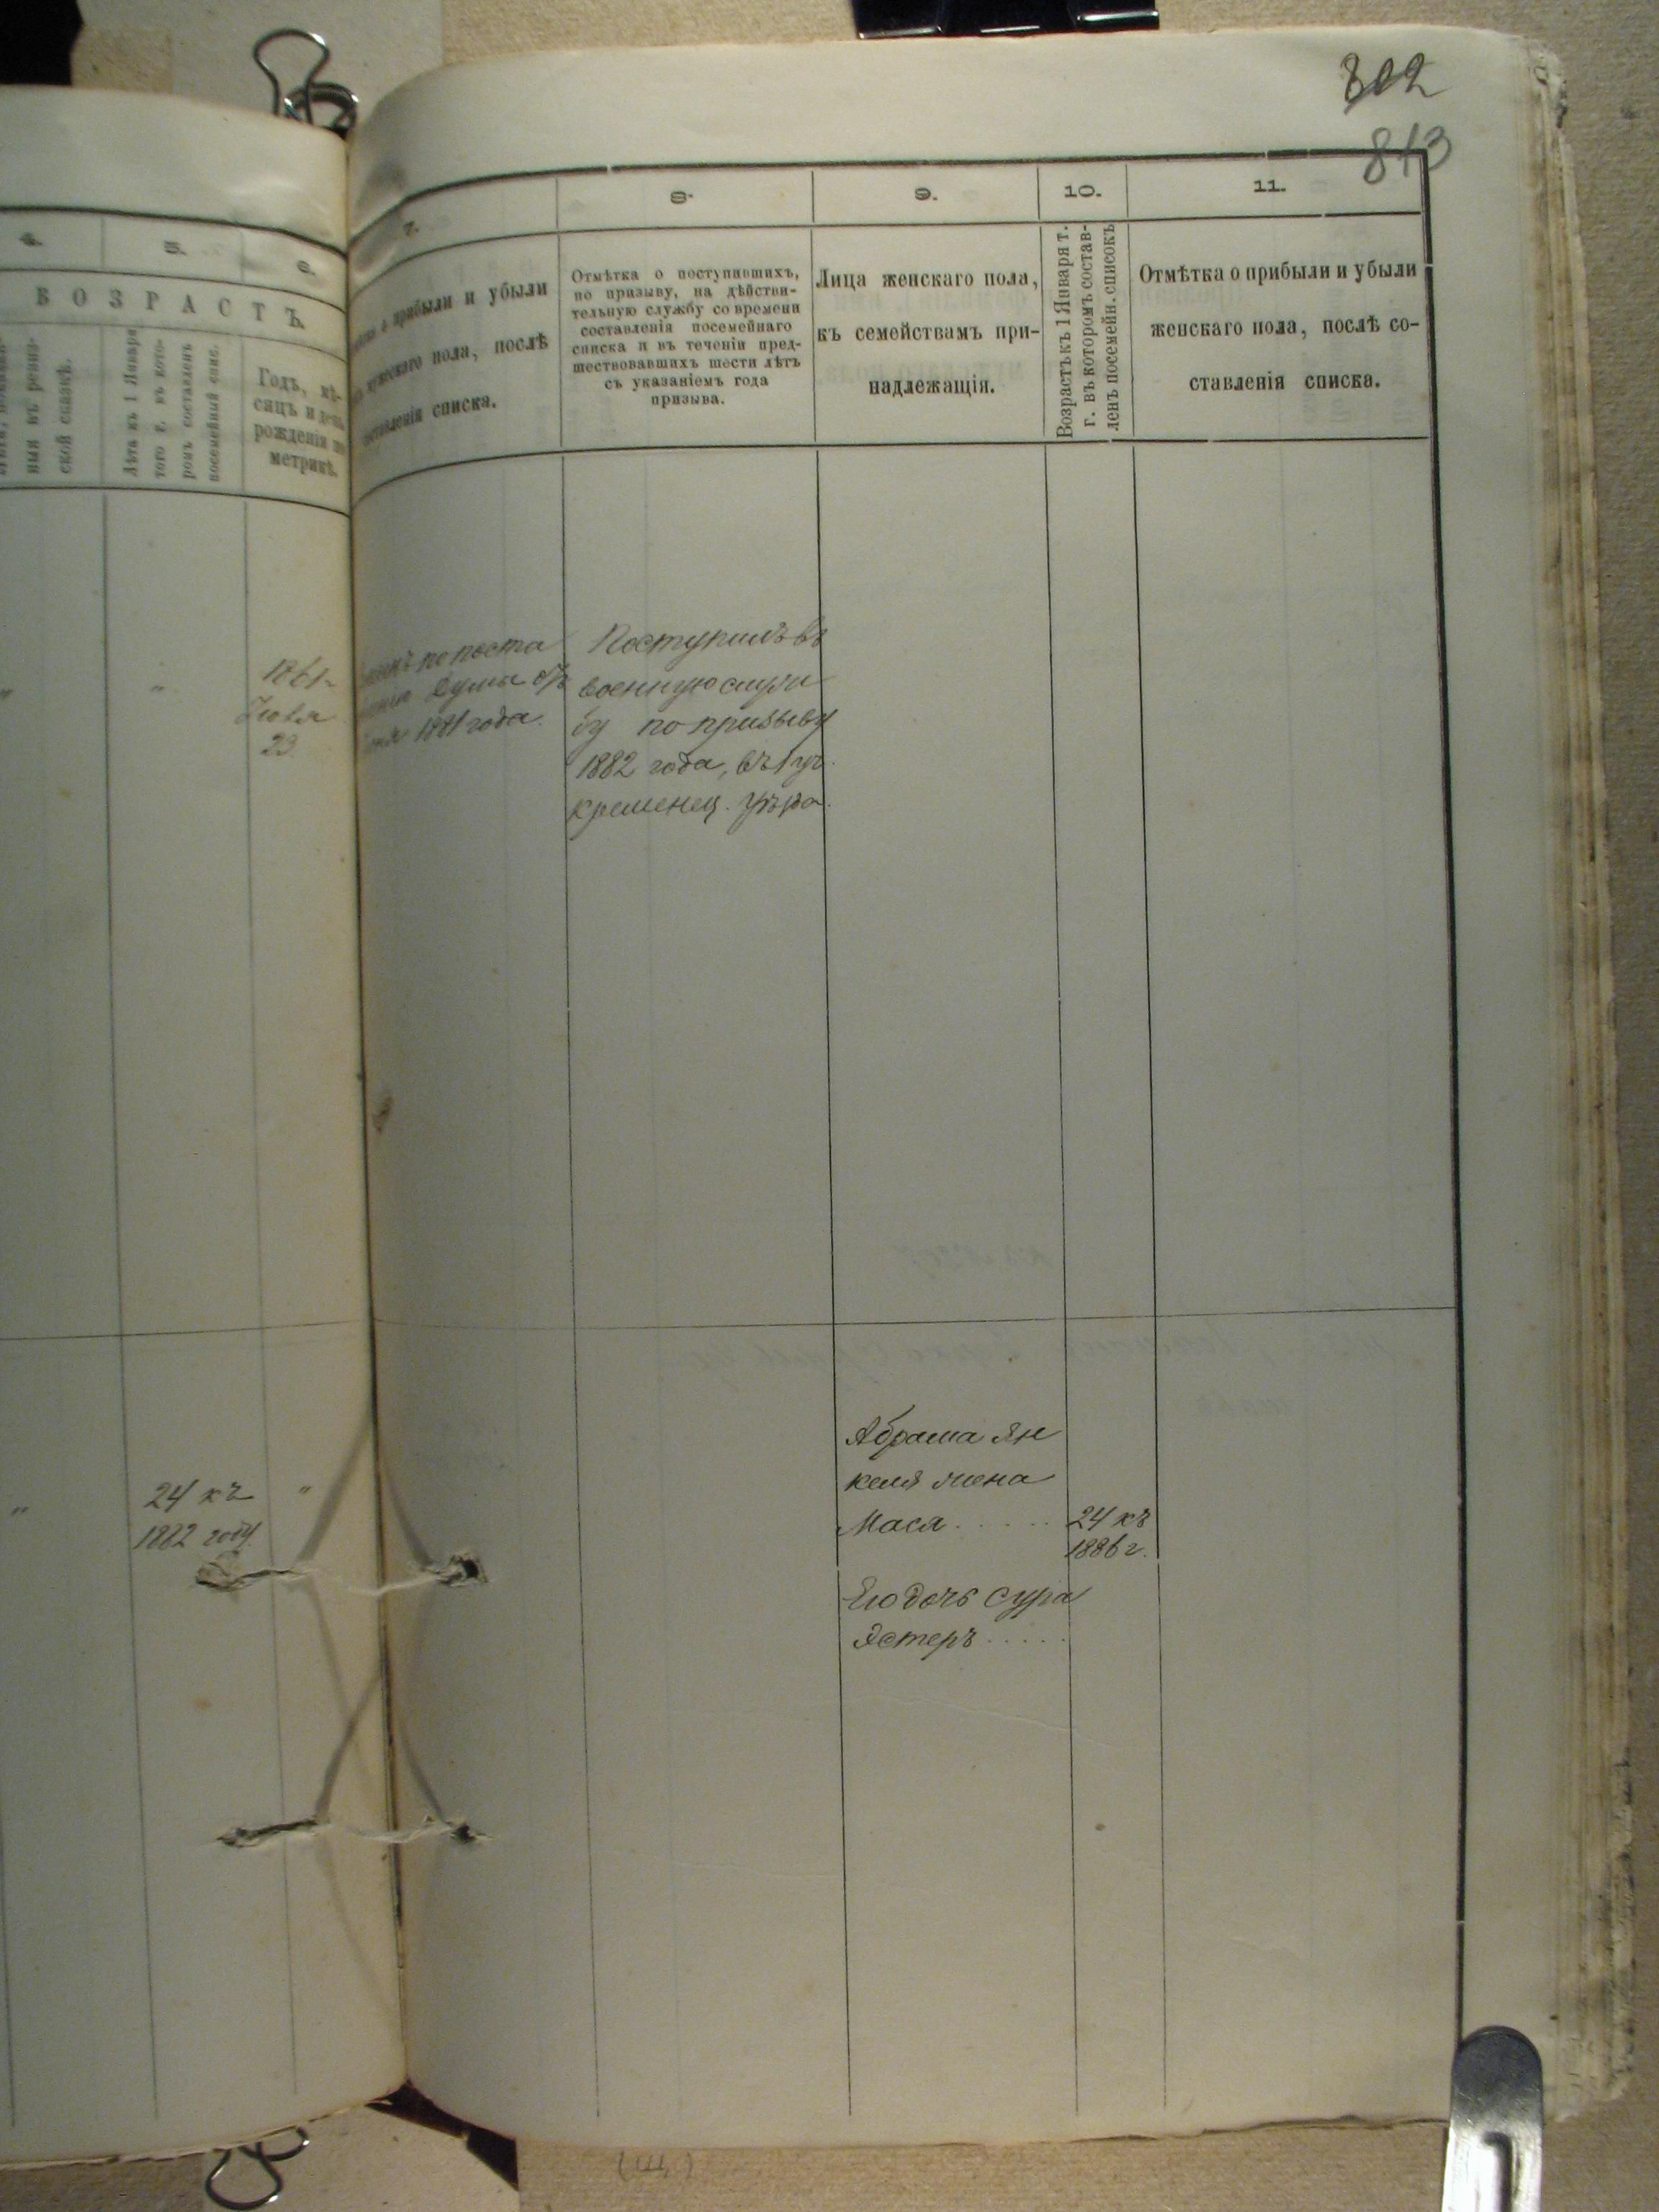 802
813
4.
5.
6.
ВОЗРАСТЪ.
ныя въ ревиз-
ской сказкѣ.
Лѣта къ 1 Января
того г. въ кото-
ромъ составленъ
посемейный спис.
Годъ, мѣ-
сяцъ и день
рожденія по
метрикѣ.
1861
Іюля
23
"
"
"
24 къ
1882 году.
"
7.
о прибыли и убыли
мужскаго пола, послѣ
составленія списка.
по поста
Думы
1881 года.
8.
Отмѣтка о поступившихъ,
по призыву, на дѣйстви-
тельную службу со времени
составленія посемейнаго
списка и въ теченіи пред-
шествовавшихъ шести лѣтъ
съ указаніемъ года
призыва.
Поступилъ въ
военную служ
бу по призыву
1882 года, въ 1 уч.
Кременец. уѣзда.
9.
Лица женскаго пола,
къ семействамъ при-
надлежащія.
Абрама Ян
келя жена
Мася . . . . .
Его дочь Сура
Эстеръ . . . . .
10.
Возрастъ къ 1 Января т.
г. въ которомъ состав-
ленъ посемейн. списокъ
24 къ
1886 г.
11.
Отмѣтка о прибыли и убыли
женскаго пола, послѣ со-
ставленія списка.